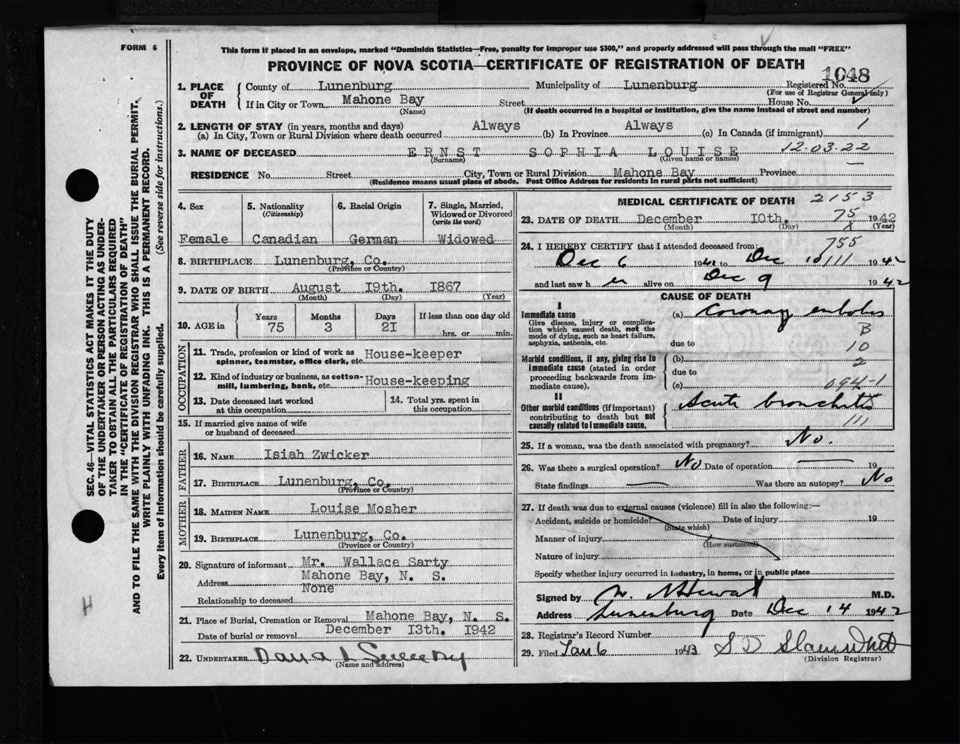 FORM 6
This form if placed in an envelope, marked "Dominion Statistics—Free, penalty for improper use $300," and properly addressed will pass through the mail "FREE"
PROVINCE OF NOVA SCOTIA—CERTIFICATE OF REGISTRATION OF DEATH
1048
1. PLACE OF DEATH { County of Lunenburg Municipality of Lunenburg Registered No.
(For use of Registrar General only)
If in City or Town Mahone Bay Street House No.
(Name) (If death occurred in a hospital or institution, give the name instead of street and number)
2. LENGTH OF STAY (in years, months and days)
(a) In City, Town or Rural Division where death occurred Always (b) In Province Always (c) In Canada (if immigrant) 1
3. NAME OF DECEASED ERNST SOPHIA LOUISE 12.03.22
(Surname) (Given name or names)
RESIDENCE No. Street City, Town or Rural Division Mahone Bay Province —
(Residence means usual place of abode. Post Office Address for residents in rural parts not sufficient)
4. Sex Female
5. Nationality (Citizenship) Canadian
6. Racial Origin German
7. Single, Married, Widowed or Divorced (write the word) Widowed
8. BIRTHPLACE Lunenburg, Co.
(Province or Country)
9. DATE OF BIRTH August 19th. 1867
(Month) (Day) (Year)
10. AGE in Years 75 Months 3 Days 21 If less than one day old hrs. or min.
OCCUPATION
11. Trade, profession or kind of work as spinner, teamster, office clerk, etc. House-keeper
12. Kind of industry or business, as cotton-mill, lumbering, bank, etc. House-keeping
13. Date deceased last worked at this occupation
14. Total yrs. spent in this occupation
15. If married give name of wife or husband of deceased
FATHER
16. NAME Isiah Zwicker
17. BIRTHPLACE Lunenburg, Co.
(Province or Country)
MOTHER
18. MAIDEN NAME Louise Mosher
19. BIRTHPLACE Lunenburg, Co.
(Province or Country)
20. Signature of informant Mr. Wallace Sarty
Address Mahone Bay, N. S.
Relationship to deceased None
21. Place of Burial, Cremation or Removal Mahone Bay, N. S.
Date of burial or removal December 13th. 1942
22. UNDERTAKER
(Name and address)
MEDICAL CERTIFICATE OF DEATH 2153
23. DATE OF DEATH December 10th. 75 1942
(Month) (Day) X (Year)
755
24. I HEREBY CERTIFY that I attended deceased from:
Dec 6 194 to Dec 1942
and last saw h er alive on Dec 9 1942
CAUSE OF DEATH
I
Immediate cause
Give disease, injury or complication which caused death, not the mode of dying, such as heart failure, asphyxia, asthenia, etc.
(a) Coronary embolus
B
due to 10
Morbid conditions, if any, giving rise to immediate cause (stated in order proceeding backwards from immediate cause).
(b) 2
due to
(c) 094-1
II
Other morbid conditions (if important) contributing to death but not causally related to immediate cause.
Acute bronchitis
111
25. If a woman, was the death associated with pregnancy? No.
26. Was there a surgical operation? No Date of operation — 19
State findings — Was there an autopsy? No
27. If death was due to external causes (violence) fill in also the following:—
Accident, suicide or homicide? Date of injury 19
(State which)
Manner of injury
(How sustained)
Nature of injury
Specify whether injury occurred in industry, in home, or in public place
Signed by M.D.
Address Lunenburg Date Dec 14 1942
28. Registrar's Record Number
29. Filed Jan 6 1943
(Division Registrar)
SEC. 46—VITAL STATISTICS ACT MAKES IT THE DUTY
OF THE UNDERTAKER OR PERSON ACTING AS UNDER-
TAKER TO OBTAIN ALL THE PARTICULARS REQUIRED
IN THE "CERTIFICATE OF REGISTRATION OF DEATH"
AND TO FILE THE SAME WITH THE DIVISION REGISTRAR WHO SHALL ISSUE THE BURIAL PERMIT.
WRITE PLAINLY WITH UNFADING INK. THIS IS A PERMANENT RECORD.
Every item of Information should be carefully supplied. (See reverse side for instructions.)
H